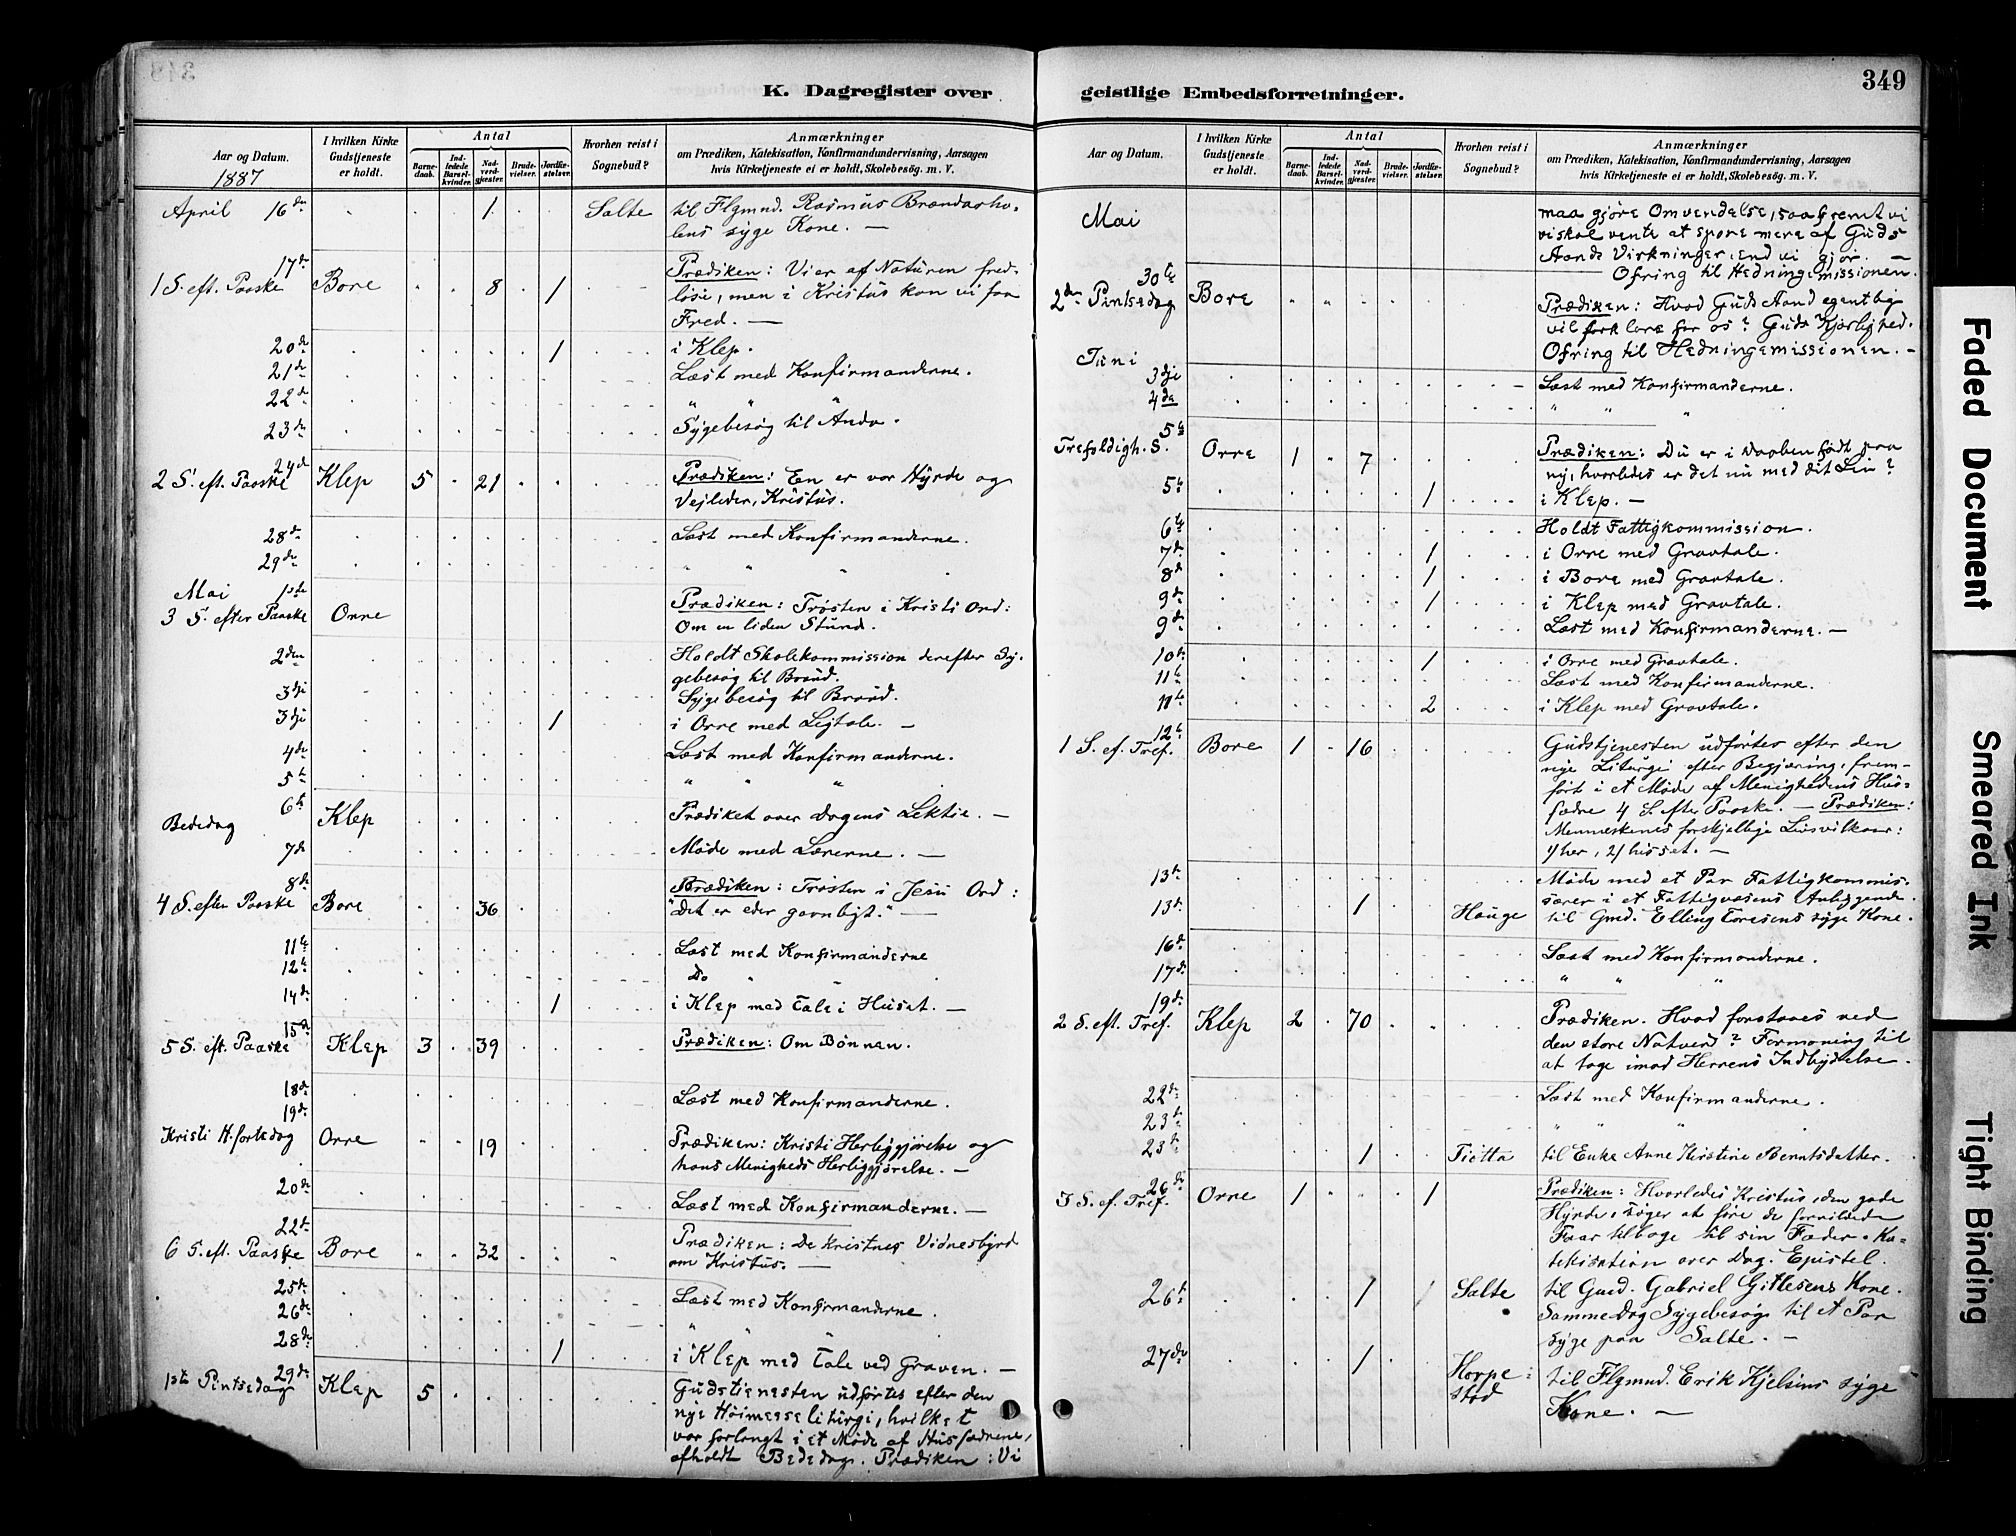 349
K. Dagregister over
geistlige Embedsforretninger.
Aar og Datum.
1887
I hvilken Kirke Gudstjeneste er holdt.
Antal
Barne-daab.
Ind-ledede Barsel-kvinder.
Nad-verd-gjæster.
Brude-vielser.
Jordfæ-stelser.
Hvorhen reist i Sognebud?
Anmærkninger
om Prædiken, Katekisation, Konfirmandundervisning, Aarsagen
hvis Kirketjeneste ei er holdt, Skolebesøg. m. V.
April 16de 1 Salte til Flgmnd. Rasmus Brændasho-
lens syge Kone. —
17de
1 S. eft. Paaske Bore 8 1 Prædiken: Vi er af Naturen fred-
løse, men i Kristus kan vi faa
Fred. —
20de 1 i Klep.
21de Læst med Konfirmanderne.
22de " " "
23de Sygebesøg til Anda.
24de
2 S. eft. Paaske Klep 5 21 Prædiken: En er vor Hyrde og
Vejleder, Kristus.
28de Læst med Konfirmanderne.
29de " " "
Mai 1ste
3 S. efter Paaske Orre Prædiken: Trøsten i Kristi Ord:
Om en liden Stund.
2den Holdt Skolekommission derefter Sy-
gebesøg til Braud.
3dji Sygebesøg til Braud.
3dji 1 i Orre med Ligtale. —
4de Læst med Konfirmanderne.
5te " " "
6te
Bededag Klep Prædiket over Dagens Lektie. —
7de Møde med Lærerne. —
8de
4 S. efter Paaske Bore 36 Prædiken: Trøsten i Jesu Ord:
"Det er eder gavnligt." —
11te Læst med Konfirmanderne
12te Do " "
14de 1 i Klep med Tale i Huset. —
15de
5 S. eft. Paaske Klep 3 39 Prædiken: Om Bønnen.
18de Læst med Konfirmanderne.
19de
Kristi H.fartsdag Orre 19 Prædiken: Kristi Herliggjørelse og
hans Menigheds Herliggjørelse. —
20de Læst med Konfirmanderne. —
22de
6 S. eft. Paaske Bore 32 Prædiken: De Kristnes Vidnesbyrd
om Kristus. —
25de Læst med Konfirmanderne.
26de " " "
28de 1 i Klep med Tale ved Graven. —
29de
1ste Pintsedag Klep 5 Gudstienesten udførtes efter den
nye Høimesseliturgi, hvilket
var forlangt i et Møde af Husfædrene,
afholdt Bededag. Prædiken: Vi
Aar og Datum.
I hvilken Kirke Gudstjeneste er holdt.
Antal
Barne-daab.
Ind-ledede Barsel-kvinder.
Nad-verd-gjæster.
Brude-vielser.
Jordfæ-stelser.
Hvorhen reist i Sognebud?
Anmærkninger
om Prædiken, Katekisation, Konfirmandundervisning, Aarsagen
hvis Kirketjeneste ei er holdt, Skolebesøg. m. V.
Mai maa gjøre Omvendelse, saafremt vi
vi skal vente at spore mere af Guds
Aands Virkninger, end vi gjør. —
Ofring til Hedningemissionen.
30te
2den Pintsedag Bore Prædiken: Hvad Guds Aand egentlig
vil forklare for os? Guds Kjærlighed.
Ofring til Hedningemissionen. —
Juni
3dje Læst med Konfirmanderne.
4de " " "
5te
Trefoldigh. S. Orre 1 7 Prædiken: Du er i Daaben født paa
ny, hvorledes er det nu med dit Liv?
5te 1 i Klep. —
6te Holdt Fattigkommission.
7de 1 i Orre med Gravtale.
8de 1 i Bore med Gravtale.
9de 1 i Klep med Gravtale.
9de Læst med Konfirmanderne. —
10de 1 i Orre med Gravtale.
11te Læst med Konfirmanderne.
11te 2 i Klep med Gravtale.
12te
1 S. ef. Tref. Bore 1 16 Gudstjenesten udførtes efter den
nye Liturgi efter Begjæring, frem-
ført i et Møde af Menighedens Hus-
fædre 4 S. efter Paaske. — Prædiken:
Menneskenes forskjellige Livsvilkaar:
1) her, 2) hisset. —
13de Møde med et Par Fattigkommis-
særer i et Fattigvæsens Anliggende.
13de 1 Hauge til Gmd. Elling Toresens syge Kone.
16de Læst med Konfirmanderne.
17de " " "
19de
2 S. eft. Tref. Klep 2 70 Prædiken. Hvad forstaaes ved
den store Natverd? Formaning til
at tage imod Herrens Indbydelse.
22de Læst med Konfirmanderne.
23de " " "
23de 1 Tiøtta til Enke Anne Kirstine Berntsdatter.
26de
3 S. ef. Tref. Orre 1 1 Prædiken: Hvorledes Kristus, den gode
Hyrde, søger at føre de forvildede
Faar tilbage til sin Fader. Ka-
tekisation over Dag. Epistel.
26de 1 Salte til Gmd. Gabriel Gitlesens Kone.
Samme Dag Sygebesøg til et Par
syge paa Salte. —
27de 1 Horpe-
stad til Flgmnd. Erik Kjelsens syge
Kone. —
Faded Document
Smeared Ink
Tight Binding